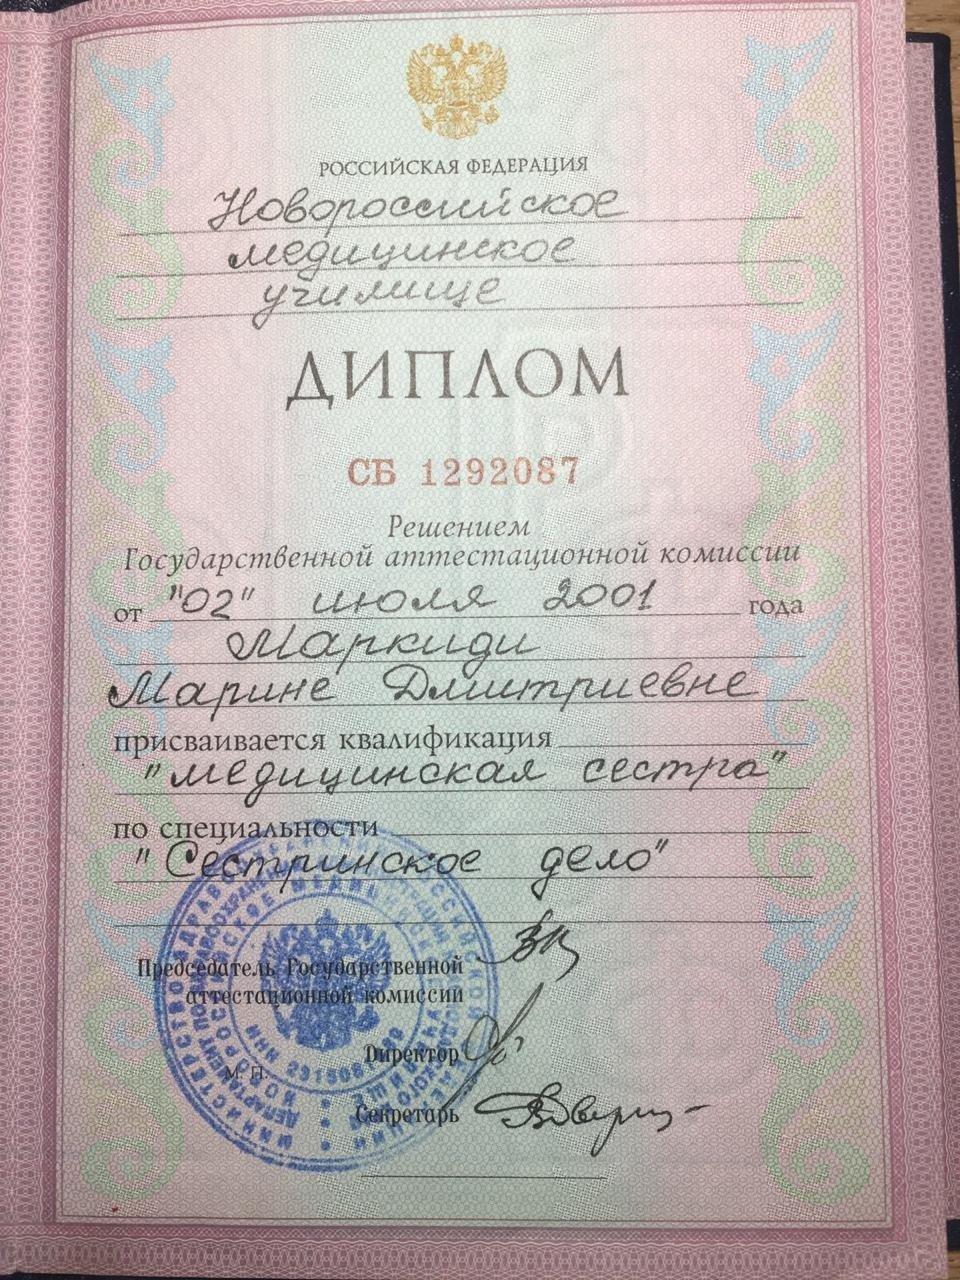 РОССИЙСКАЯ ФЕДЕРАЦИЯ
Новороссийское
медицинское
училище
ДИПЛОМ
СБ 1292087
Решением
Государственной аттестационной комиссии
от "02" июля 2001 года
Маркиди
Марине Дмитриевне
присваивается квалификация
"медицинская сестра"
по специальности
"Сестринское дело"
Председатель Государственной
аттестационной комиссии
Директор
М. П.
Секретарь